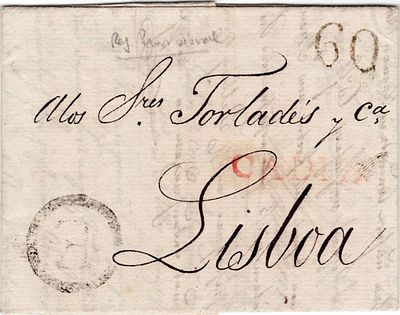 60
Alos Sres Torladés y Ca
CADIZ
Lisboa